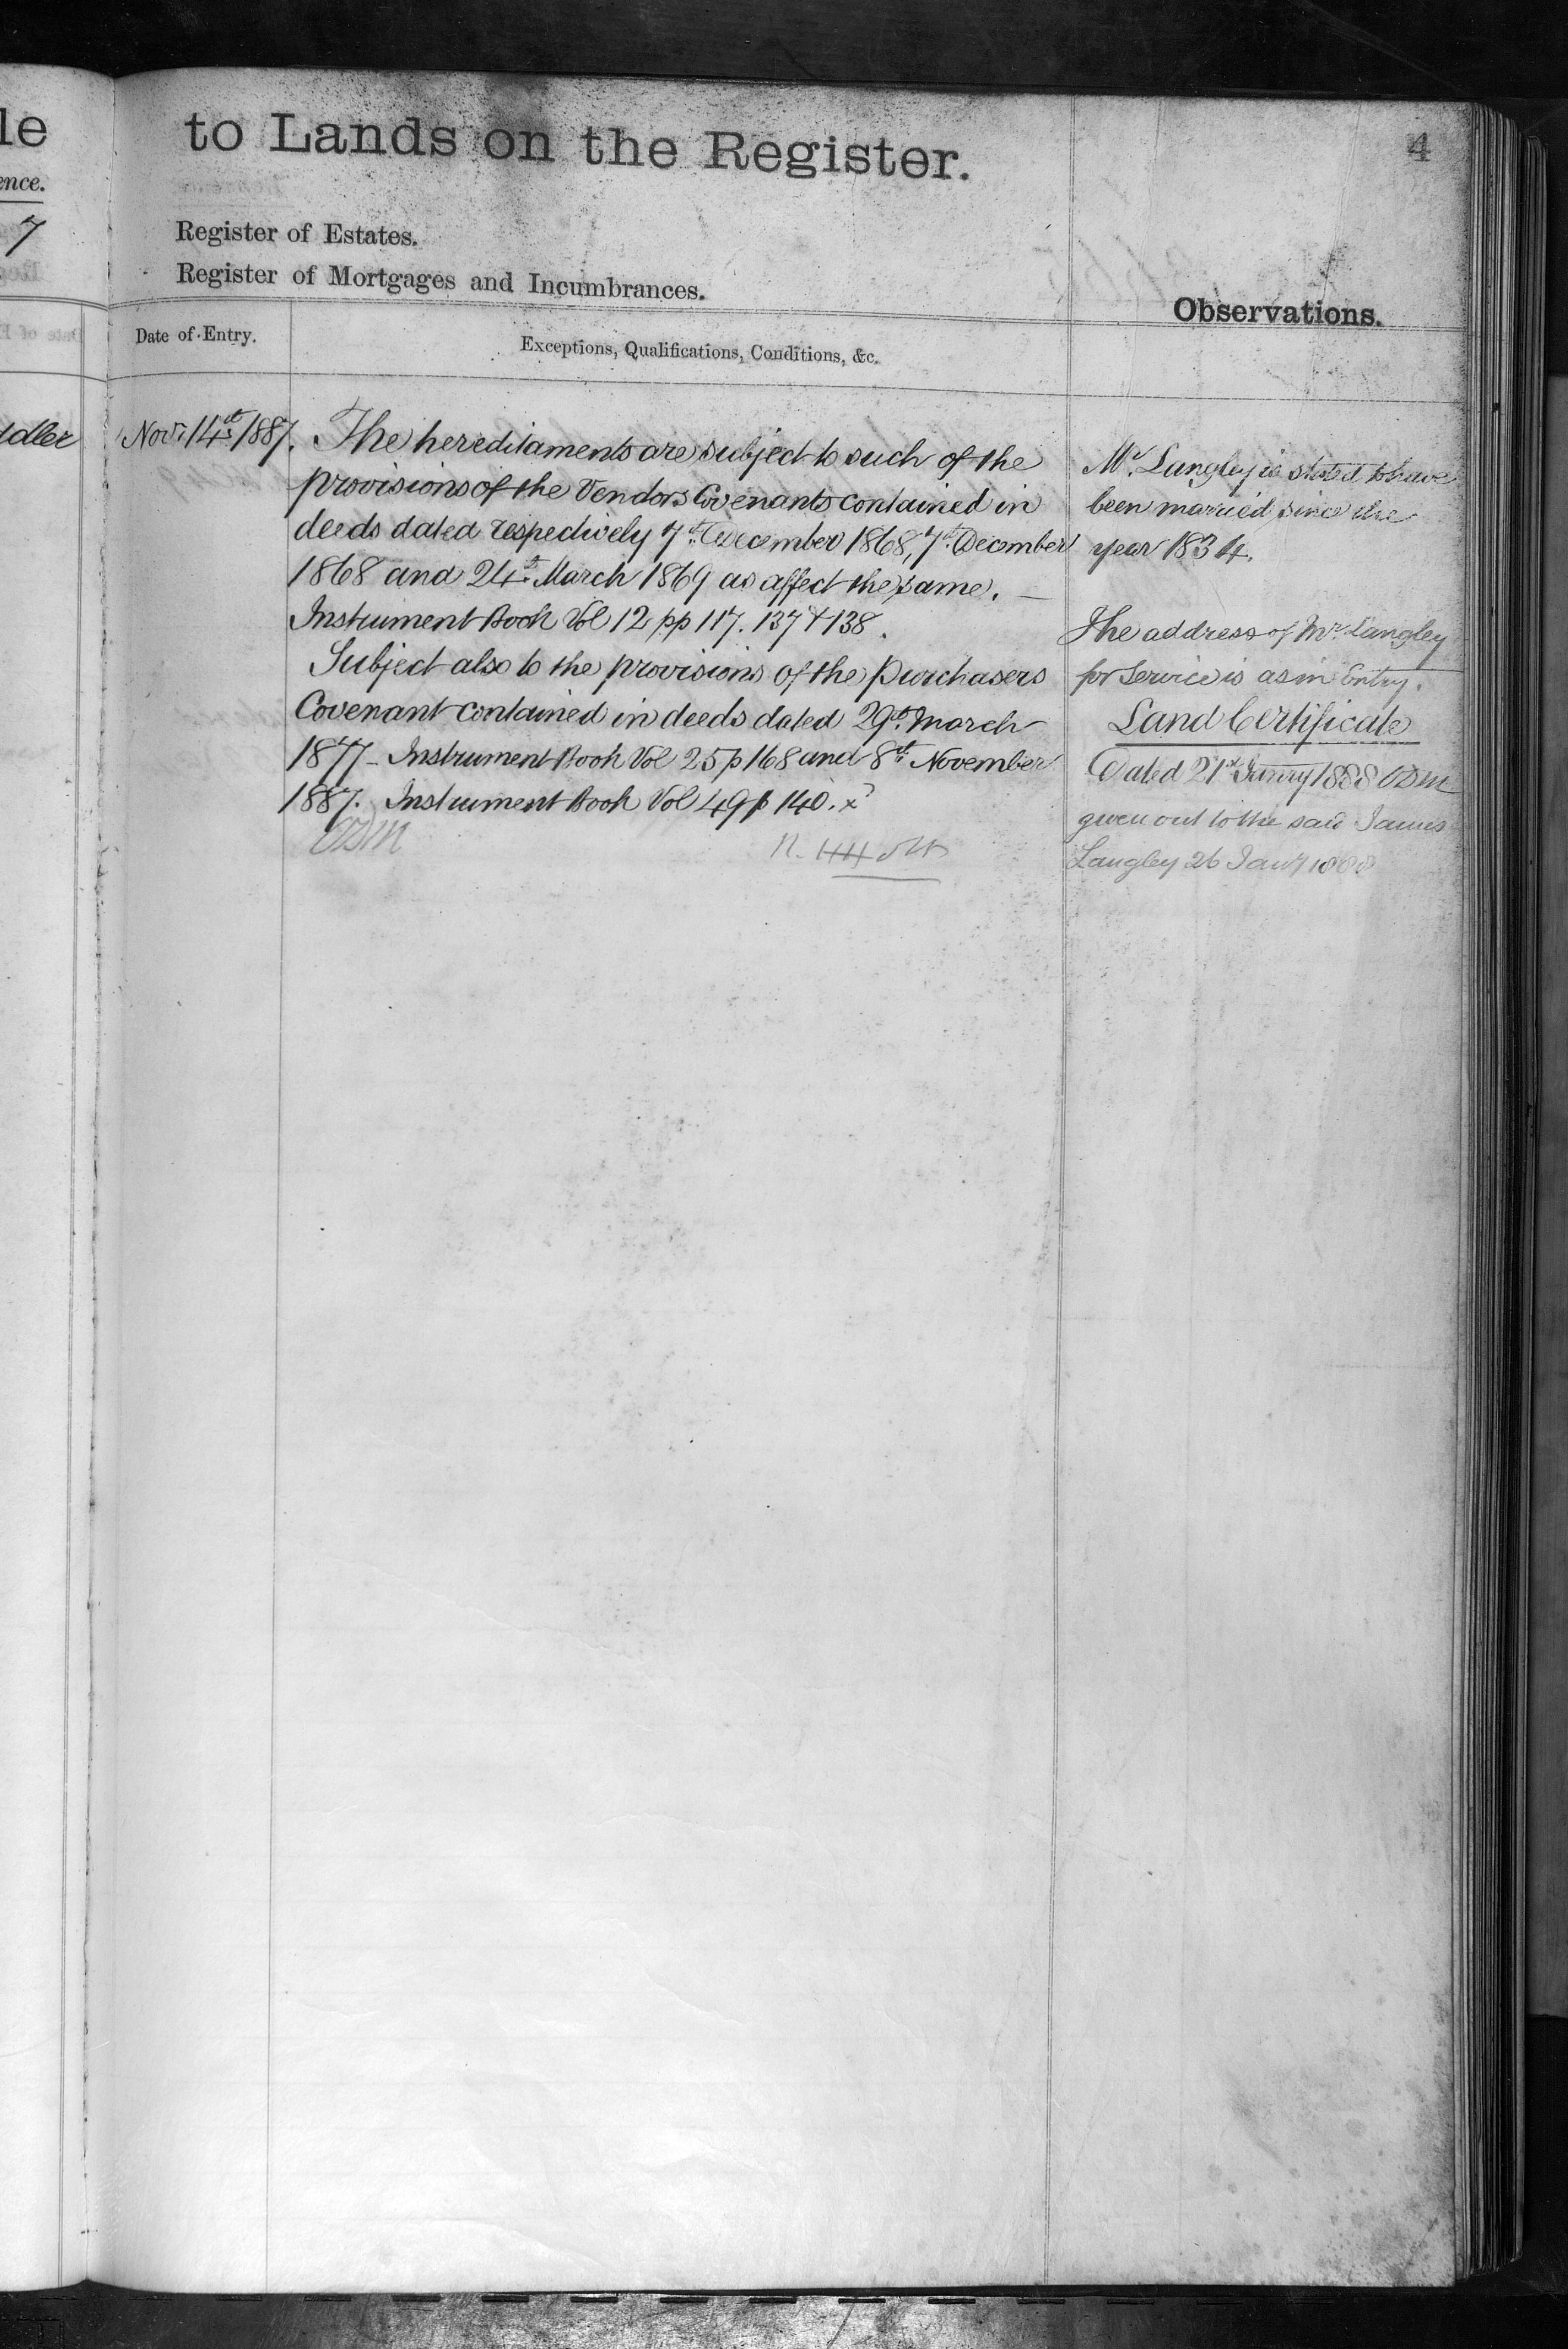 le
ence.
7
dler
to Lands on the Register.
4
Register of Estates.
Register of Mortgages and Incumbrances.
Date of Entry.
Exceptions, Qualifications, Conditions, &c.
Observations.
Novr. 14th 1887.
The hereditaments are subject to such of the
provisions of the Vendors Covenants contained in
deeds dated respectively 7th December 1868, 7th December
1868 and 24th March 1869 as affect the same. —
Instrument Book Vol 12 pp 117. 137 & 138.
Subject also to the provisions of the Purchasers
Covenant contained in deeds dated 29th March
1877 – Instrument Book Vol 25 p 168 and 8th November
1887. Instrument Book Vol 49 p 140. x
BDM
Mr Langley is stated to have
been married since the
year 1834.
The address of Mr Langley
for Service is as in Entry.
Land Certificate
Dated 21st Janry 1888 BDM
given out to the said James
Langley 26 Jany 1888